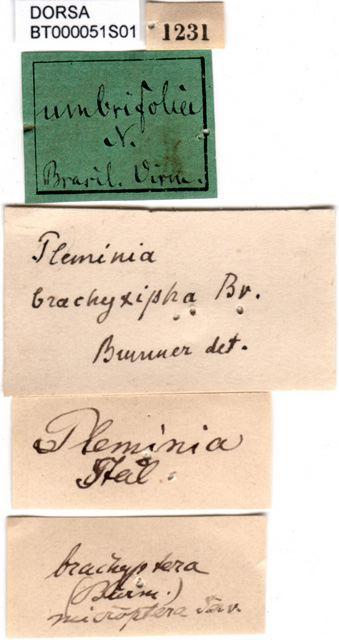 DORSA
BT000051S01
1231
umbrifolia
N.
Brasil. Virm.
Pleminia
brachyxipha Br.
Brunner det.
Pleminia
Stal
brachyptera
(Burm.)
microptera Serv.